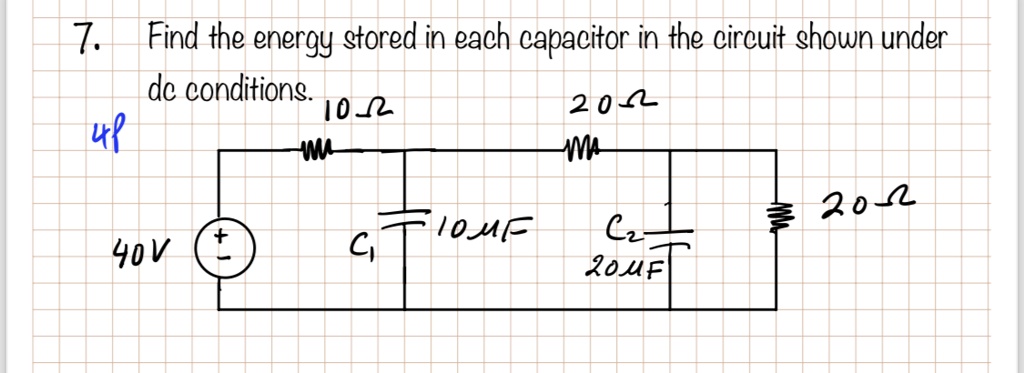 7. Find the energy stored in each capacitor in the circuit shown under
dc conditions.
4p
10Ω
20Ω
20Ω
40V
+
-
C₁
10μF
C₂
20μF